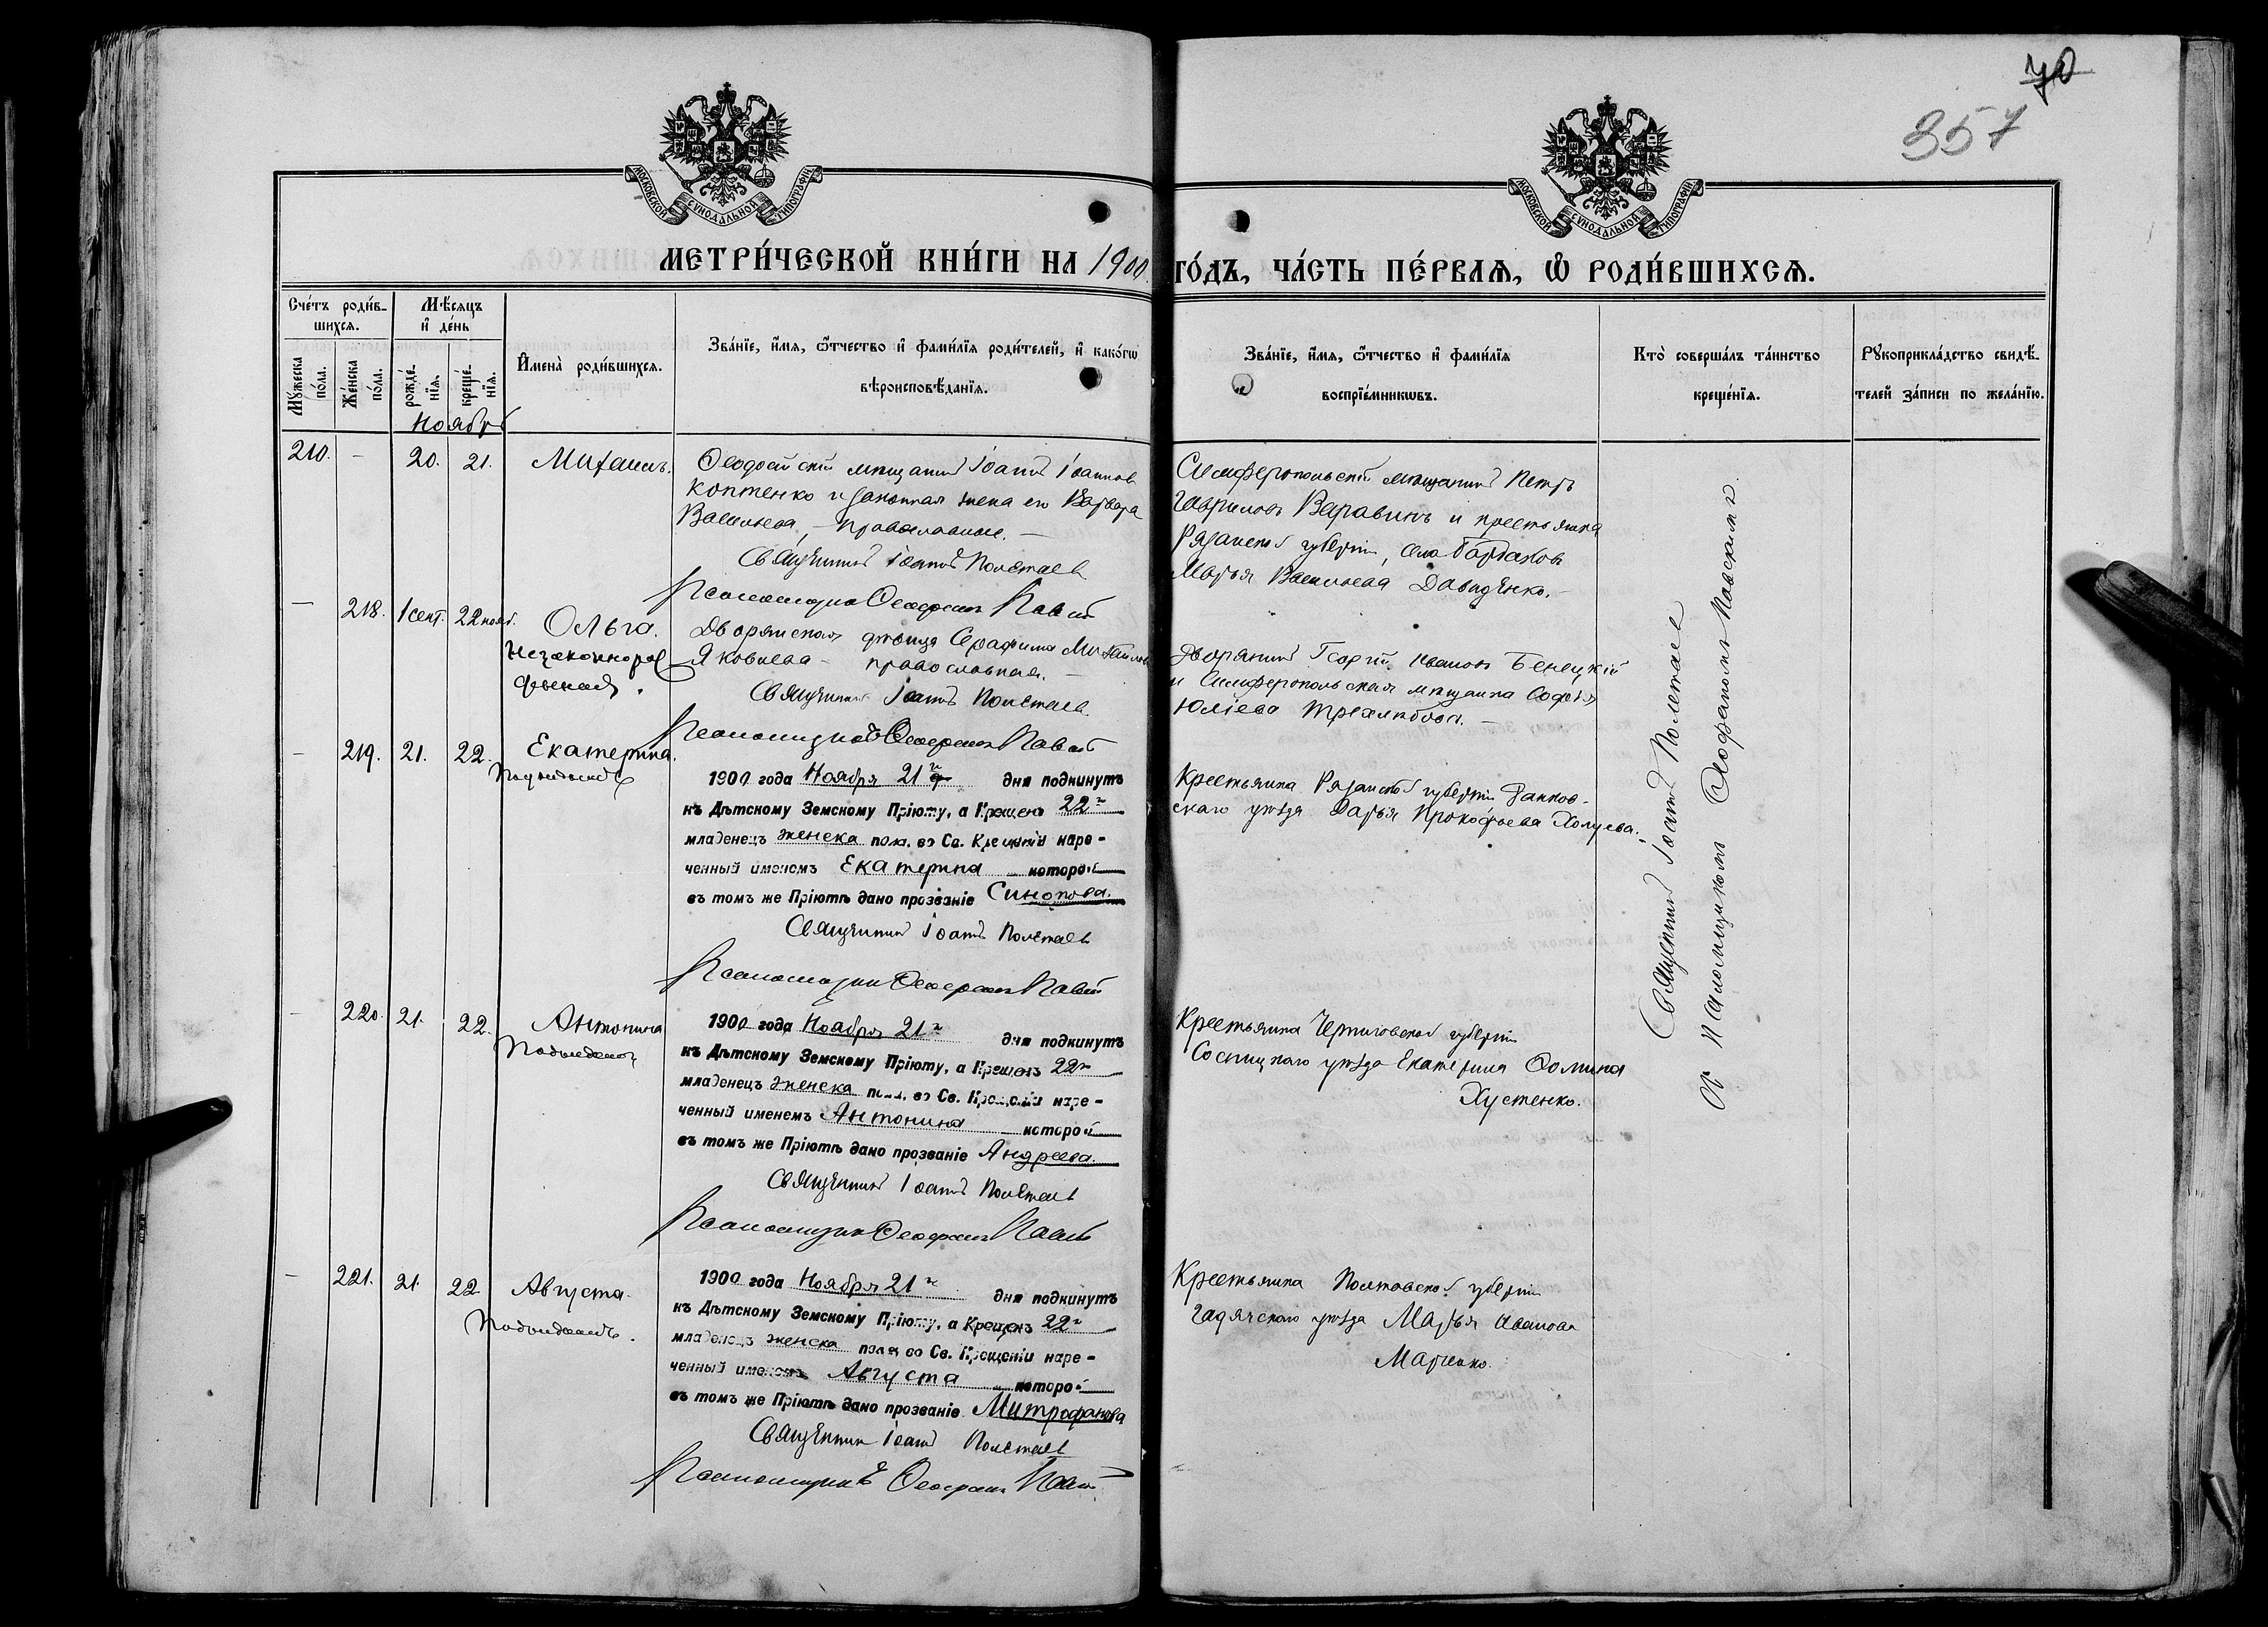 70
357
МОСКОВСКОЙ СѴНОДАЛЬНОЙ ТИПОГРАФІИ
МОСКОВСКОЙ СѴНОДАЛЬНОЙ ТИПОГРАФІИ
МЕТРИ́ЧЕСКОЙ КНИ́ГИ НА 1900 ГО́ДЪ, ЧА́СТЬ ПЕ́РВАЯ, Ѽ РОДИ́ВШИХСЯ.
Сче́тъ роди́в-
шихся.
Мѣ́сяцъ
и҆ де́нь
Мꙋ́жеска по́ла.
Же́нска по́ла.
рожде́-
нїя.
креще́-
нїя.
И҆мена̀ роди́вшихся.
Зва́нїе, и҆́мя, ѻ҆́тчество и҆ фами́лїя роди́телей, и҆ како́гѡ
вѣроисповѣ́данїя.
Зва́нїе, и҆́мя, ѻ҆́тчество и҆ фами́лїя
воспрїе́мникѡвъ.
Кто̀ соверша́лъ та́инство
креще́нїя.
Рꙋкоприкла́дство свидѣ́-
телей за́писи по жела́нїю.
Ноябрь
210. - 20. 21. Михаилъ.
Ѳеодосійскій мѣщанинъ Іоаннъ Іоанновъ
Коптенко и законная жена его Варвара
Васильева, - православные. -
Священникъ Іоаннъ Полетаев
Псаломщик Ѳеофанъ
Симферопольскій мѣщанинъ Петръ
Гавриловъ Варавинъ и крестьянка
Рязанской губерніи, села
Марья Васильева Давиденко. -
- 218. 1 сент. 22 нояб. Ольга.
Незаконнорож
денная.
Дворянская дѣвица Серафима Михайлова
Яковлева - православная. -
Священникъ Іоаннъ Полетаев
Псаломщикъ Ѳеофанъ
Дворянинъ Георгій Ивановъ Бенецкій
и Симферопольская мѣщанка Софья
Юліева
- 219. 21. 22. Екатерина.
Подкидышъ
1900 года Ноября 21го дня подкинутъ
къ Дѣтскому Земскому Пріюту, а Крещенъ 22го
младенецъ женска пола, во Св. Крещеніи наре-
ченный именемъ Екатерина которой
въ томъ же Пріютѣ дано прозваніе Синопова.
Священникъ Іоаннъ Полетаев
Псаломщик Ѳеофанъ
Крестьянка Рязанской губерніи Данков-
скаго уѣзда Дарья Прокофьева Холуева.
- 220. 21. 22. Антонина
Подкидышъ
1900 года Ноября 21го дня подкинутъ
къ Дѣтскому Земскому Пріюту, а Крещенъ 22го
младенецъ женска пола, во Св. Крещеніи наре-
ченный именемъ Антонина которой
въ томъ же Пріютѣ дано прозваніе Андреева.
Священникъ Іоаннъ Полетаев
Псаломщик Ѳеофанъ
Крестьянка Черниговской губерніи
Сосницкаго уѣзда Екатерина Ѳомина
Хустенко.
- 221. 21. 22 Августа.
Подкидышъ.
1900 года Ноября 21го дня подкинутъ
къ Дѣтскому Земскому Пріюту, а Крещенъ 22го
младенецъ женска пола во Св. Крещеніи наре-
ченный именемъ Августа которой
въ томъ же Пріютѣ дано прозваніе Митрофанова
Священник Іоаннъ Полетаев
Псаломщикъ Ѳеофанъ
Крестьянка Полтавской губерніи
Гадячскаго уѣзда Марья Иванова
Марченко.
Священникъ Іоаннъ Полетаев
съ псаломщикомъ Ѳеофаномъ Павскимъ.